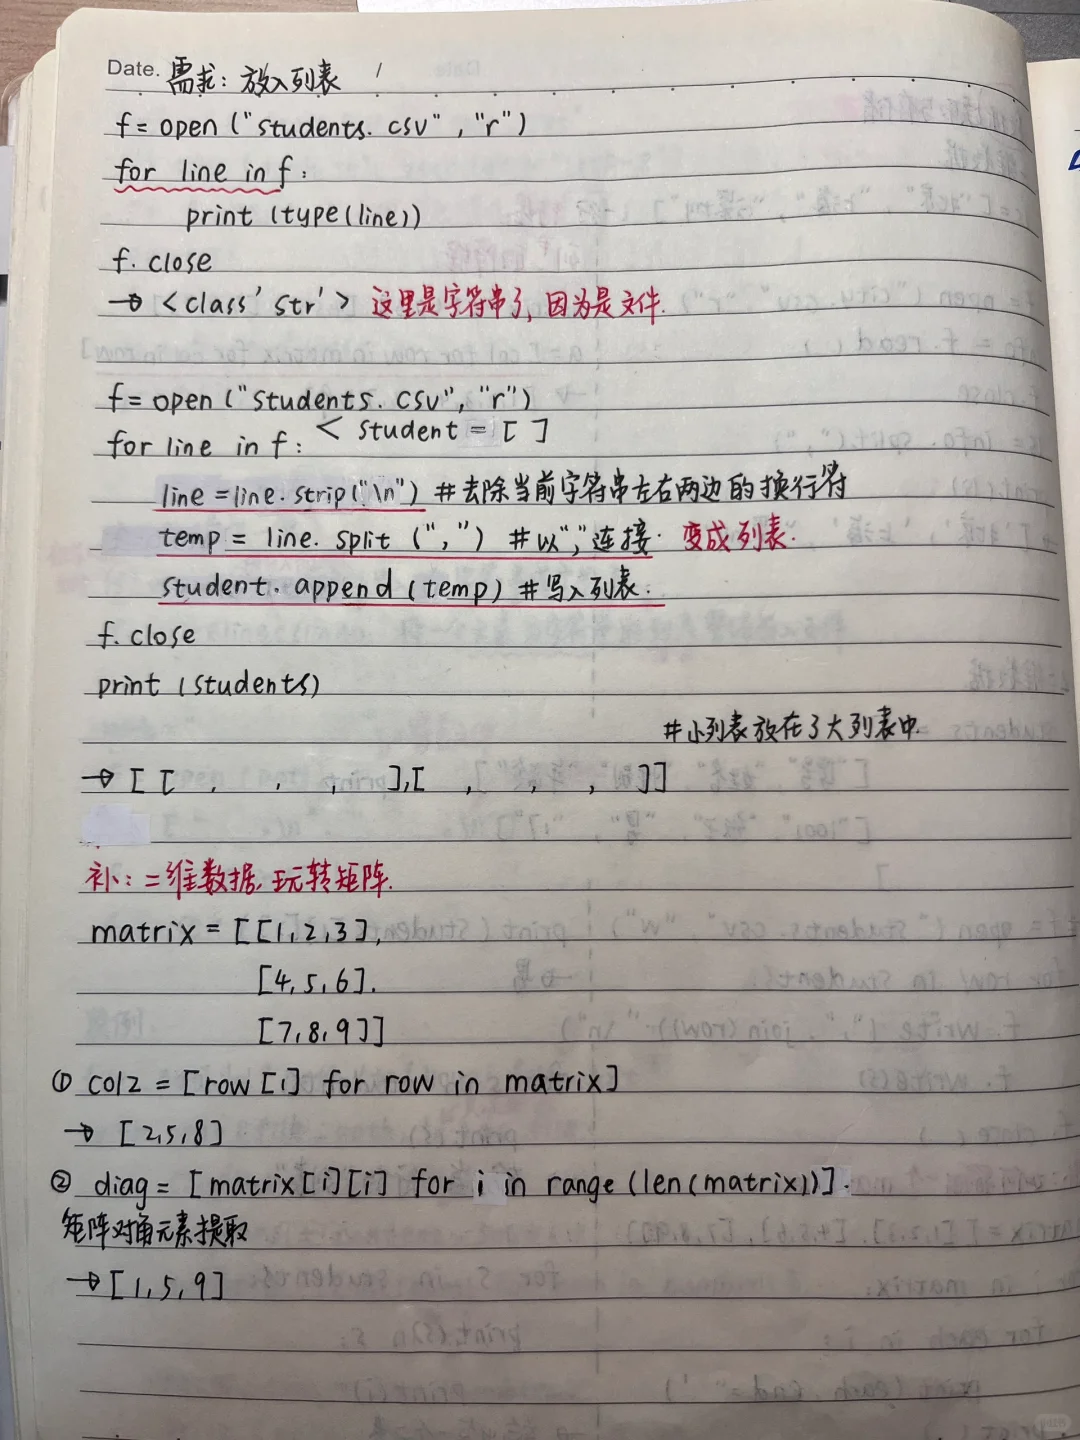 Date. 需求: 放入列表 /
f= open ("students. csv" , "r")
for line in f :
print (type(line))
f. close
→ <class' str' > 这里是字符串了, 因为是文件.
f= open ("students. csv", "r")
for line in f: < student = [ ]
line =line. strip("\n") #去除当前字符串左右两边的换行符
temp = line. split (",") #以","连接. 变成列表.
student. append (temp) #写入列表.
f. close
print (students)
#小列表放在了大列表中.
→ [ [ , , , ],[ , , , ]]
补: 二维数据, 玩转矩阵.
matrix = [[1,2,3],
[4,5,6].
[7,8,9]]
① col2 = [row [1] for row in matrix]
→ [2,5,8]
② diag = [matrix[i][i] for i in range (len(matrix))].
矩阵对角元素提取
→ [1,5,9]